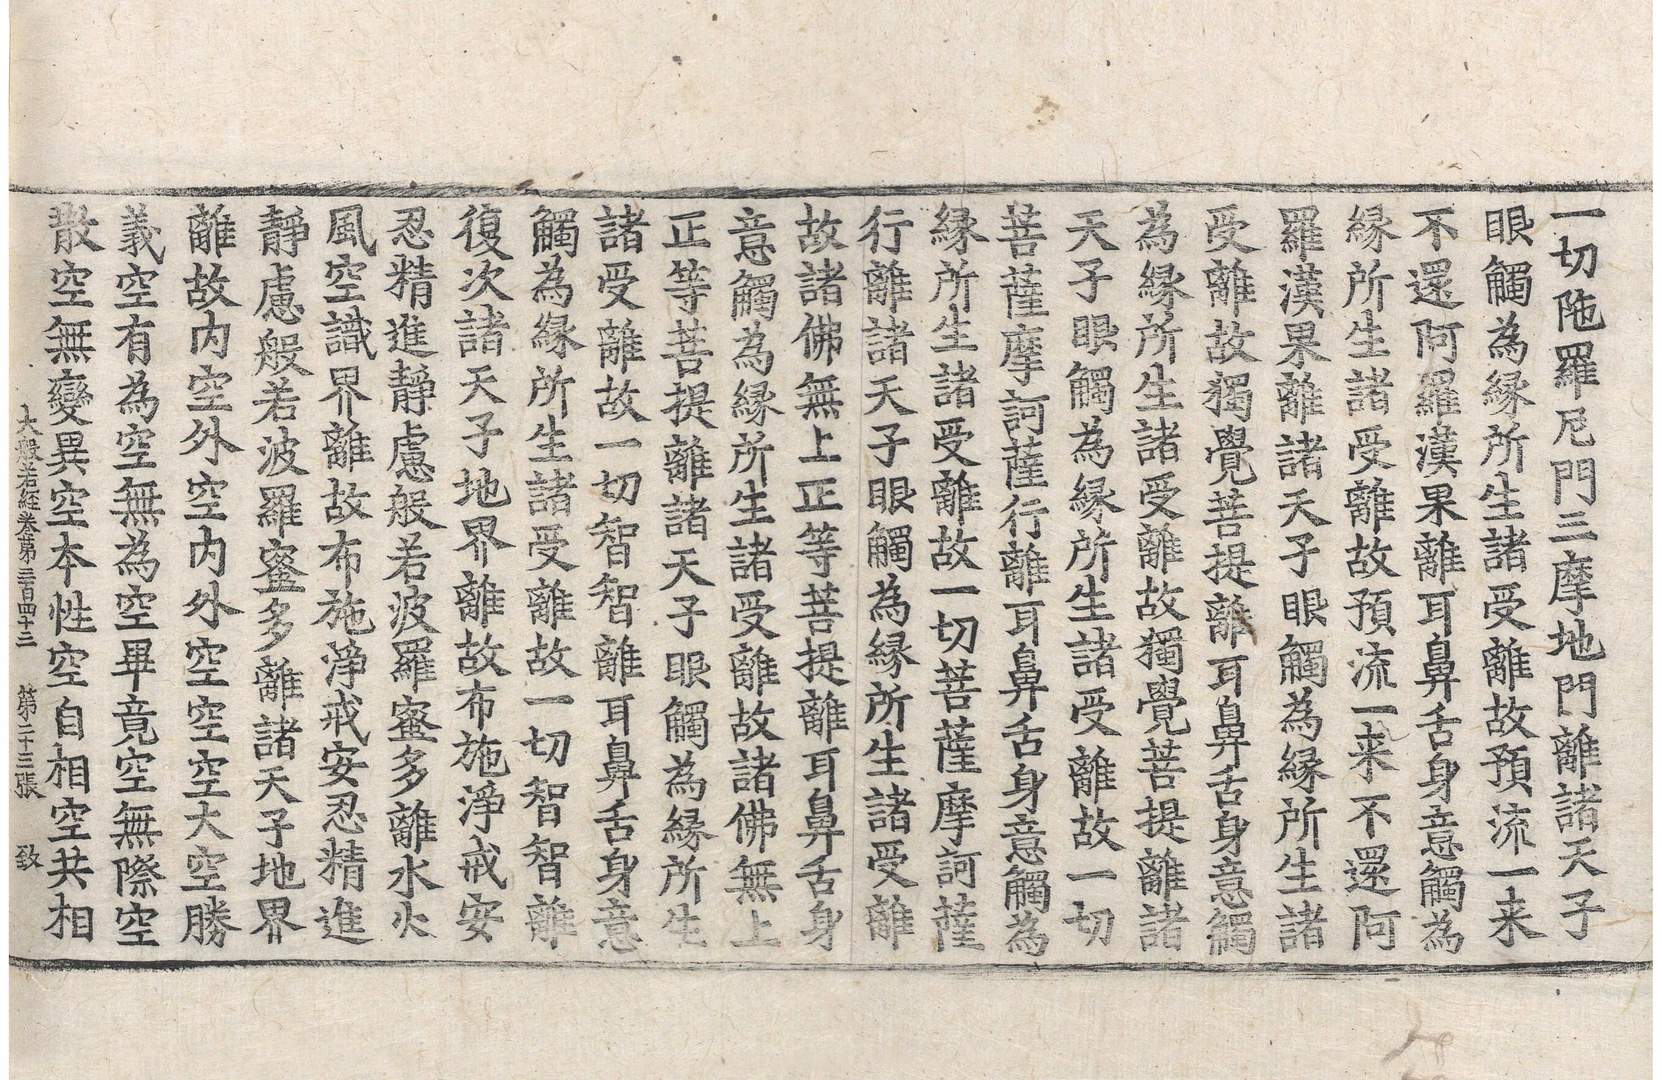 一切陁羅尼門三摩地門離諸天子
眼觸為縁所生諸受離故預流一来
不還阿羅漢果離耳鼻舌身意觸為
縁所生諸受離故預流一来不還阿
羅漢果離諸天子眼觸為縁所生諸
受離故獨覺菩提離耳鼻舌身意觸
為縁所生諸受離故獨覺菩提離諸
天子眼觸為縁所生諸受離故一切
菩薩摩訶薩行離耳鼻舌身意觸為
縁所生諸受離故一切菩薩摩訶薩
行離諸天子眼觸為縁所生諸受離
故諸佛無上正等菩提離耳鼻舌身
意觸為縁所生諸受離故諸佛無上
正等菩提離諸天子眼觸為縁所生
諸受離故一切智智離耳鼻舌身意
觸為縁所生諸受離故一切智智離
復次諸天子地界離故布施淨戒安
忍精進靜慮般若波羅蜜多離水火
風空識界離故布施淨戒安忍精進
靜慮般若波羅蜜多離諸天子地界
離故内空外空内外空空空大空勝
義空有為空無為空畢竟空無際空
散空無變異空本性空自相空共相
大般若經卷第三百四十二 第二十三張 致